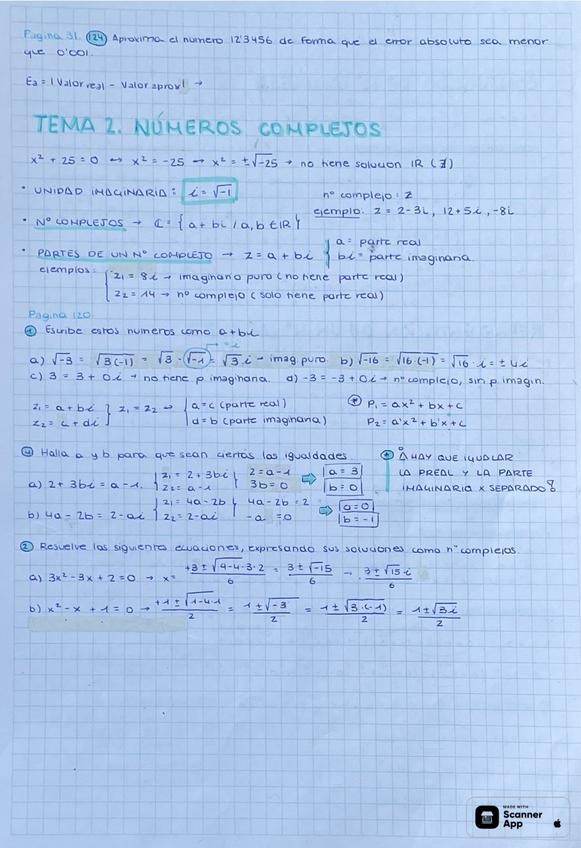 Pagina 31. (124) Aproxima el numero 12'3456 de forma que el error absoluto sea menor
que 0'001.
Ea = |Valor real - Valor aprox| →
TEMA 2. NÚMEROS COMPLEJOS
x² + 25 = 0 ↔ x² = -25 → x² = ±√-25 → no tiene solucion IR (∄)
· UNIDAD IMAGINARIA: i = √-1
nº complejo: z
ejemplo: z = 2-3i, 12+5i, -8i
· Nº COMPLEJOS → ℂ = {a + bi / a, b ∈ IR}
· PARTES DE UN Nº COMPLEJO → z = a + bi { a = parte real
bi = parte imaginaria
ejemplos: { z₁ = 8i → imaginario puro (no tiene parte real)
z₂ = 14 → nº complejo (solo tiene parte real)
Pagina 120
① Escribe estos numeros como a+bi
= i
a) √-3 = √3(-1) = √3 · √-1 = √3 i → imag. puro. b) √-16 = √16(-1) = √16 · i = ± 4i
c) 3 = 3 + 0i → no tiene p. imaginaria. d) -3 = -3 + 0i → nº complejo, sin p. imagin.
z₁ = a + bi } z₁ = z₂ → { a = c (parte real)
z₂ = c + di d = b (parte imaginaria)
* P₁ = ax² + bx + c
P₂ = a'x² + b'x + c
④ Halla a y b para que sean ciertas las igualdades
a) 2 + 3bi = a - 1. { z₁ = 2 + 3bi } 2 = a - 1 ⇒ a = 3
z₂ = a - 1 3b = 0 b = 0
b) 4a - 2b = 2 - ai { z₁ = 4a - 2b } 4a - 2b = 2 ⇒ a = 0
z₂ = 2 - ai -a = 0 b = -1
* ¡HAY QUE IGUALAR
LA PREAL Y LA PARTE
IMAGINARIA X SEPARADO!
② Resuelve las siguientes ecuaciones, expresando sus soluciones como nº complejos.
a) 3x² - 3x + 2 = 0 → x = +3 ± √9-4·3·2 / 6 = 3 ± √-15 / 6 → 3 ± √15 i / 6
b) x² - x + 1 = 0 → +1 ± √1-4·1 / 2 = 1 ± √-3 / 2 = 1 ± √3·(-1) / 2 = 1 ± √3 i / 2
MADE WITH
Scanner
App